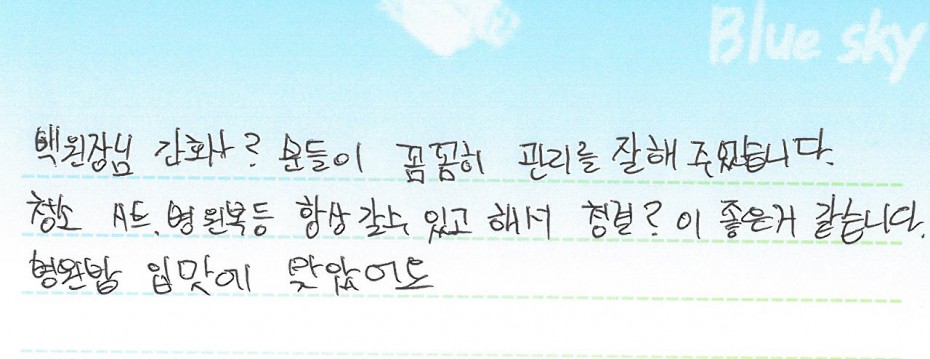 Blue sky
백원장님 간화사? 분들이 꼼꼼히 관리를 잘해 주었습니다.
청소 시트, 병원복등 항상 갈수 있고 해서 청결? 이 좋은거 같습니다.
병원밥 입맛에 맞았어요